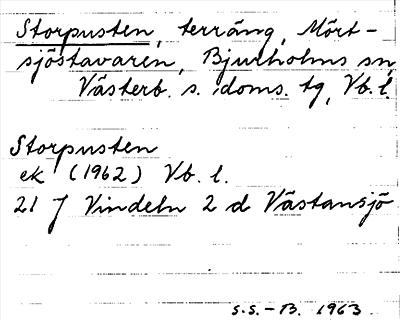 Storpusten, terräng, Mört-
sjöstavaren, Bjurholms sn,
Västerb. s. doms. tg, Vb. l.
Storpusten
ek (1962) Vb. l.
21 J Vindeln 2 d Västansjö
S.S.-B. 1963.